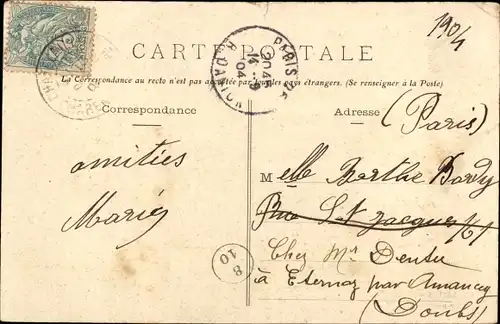 1904
CARTE POSTALE
La Correspondance au recto n'est pas acceptée par tous les pays étrangers. (Se renseigner à la Poste)
PARIS
R. DANTON
20 45
14 - 8
04
Correspondance
Adresse
(Paris)
amitiés
Marie
Melle Berthe Bardy
Rue St Jacques 161
Chez Mr Dentu
à Eternoz par Amancey
(Doubs)
8
10